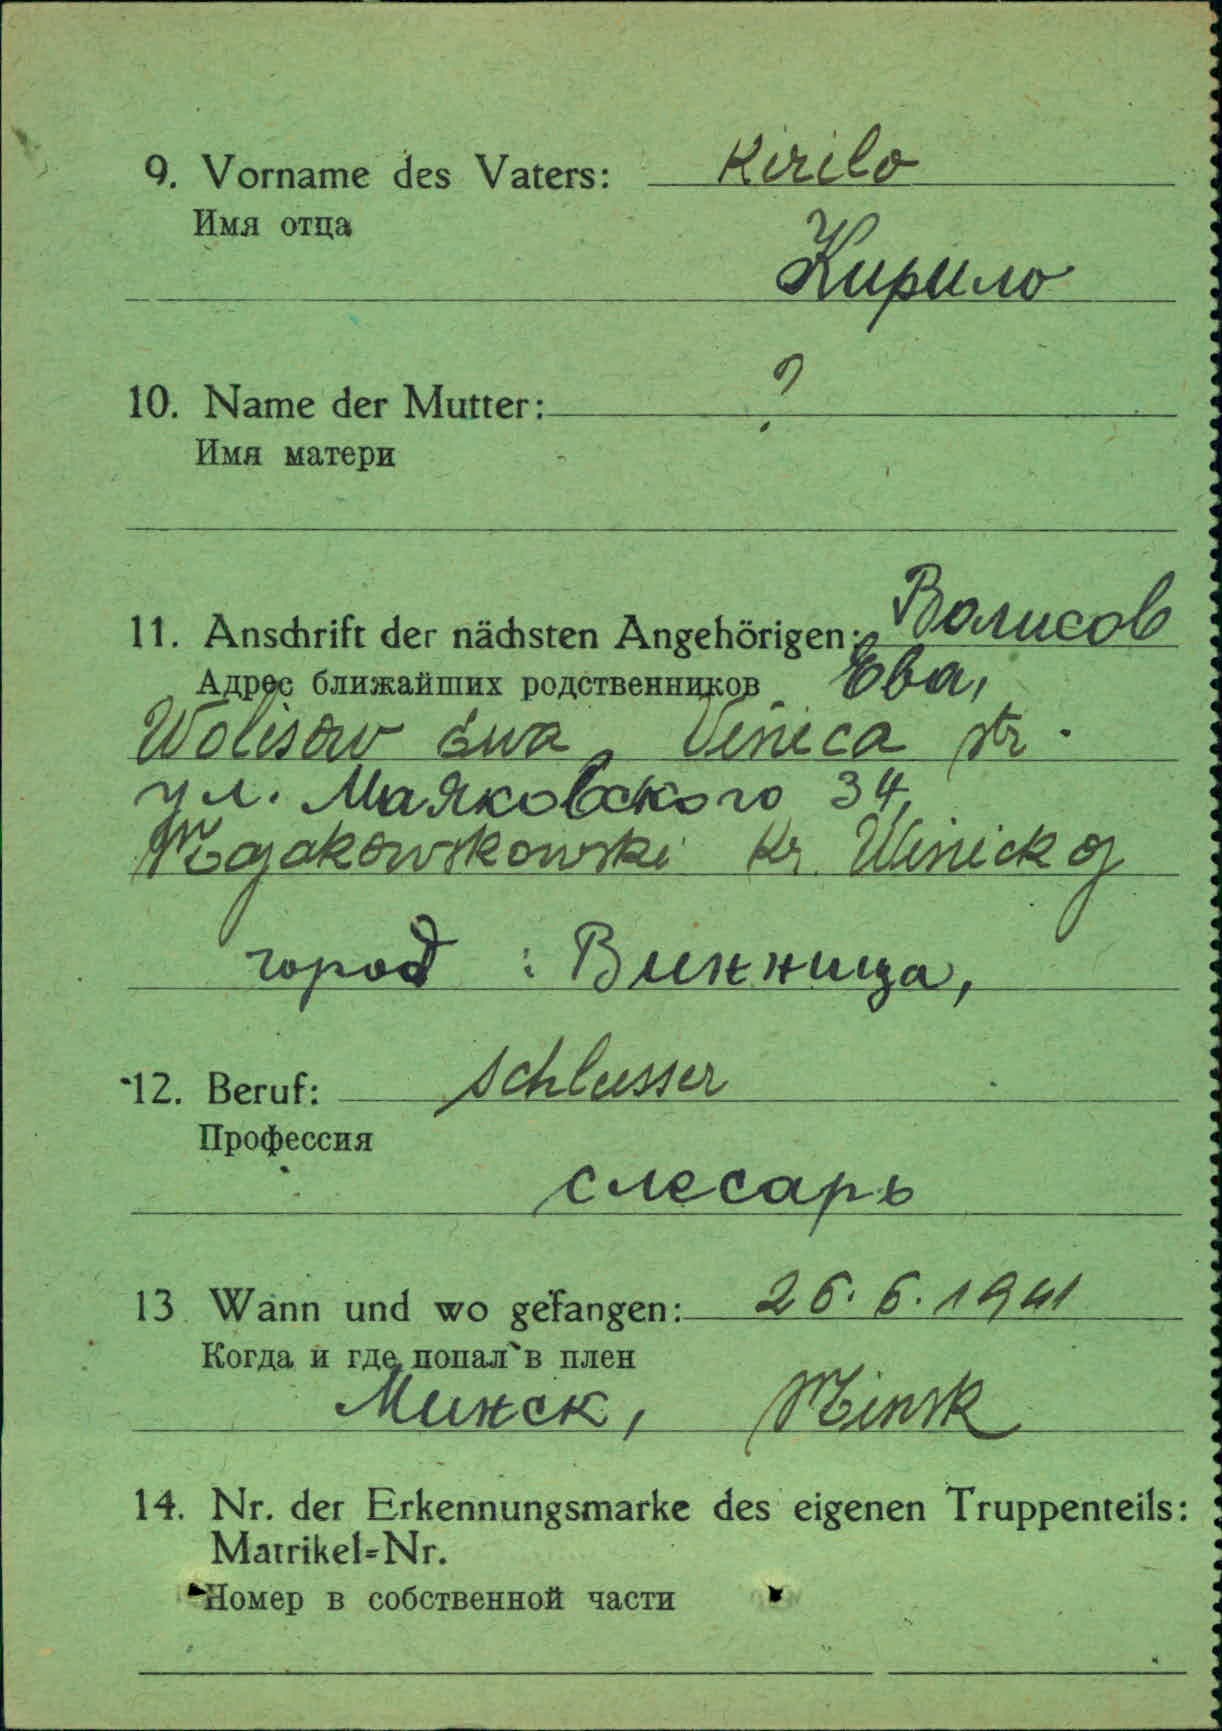 9. Vorname des Vaters: Kirilo
Имя отца
Кирило
10. Name der Mutter: ?
Имя матери
11. Anschrift der nächsten Angehörigen: Волисов
Адрес ближайших родственников Ева,
Wolisow Ewa, Winica str.
ул. Маяковского 34,
Majakowskowski Kr. Winickoj
город : Винница,
12. Beruf: Schlusser
Профессия
слесарь
13 Wann und wo gefangen: 26.6.1941
Когда и где попал в плен
Минск, Minsk
14. Nr. der Erkennungsmarke des eigenen Truppenteils:
Matrikel=Nr.
Номер в собственной части